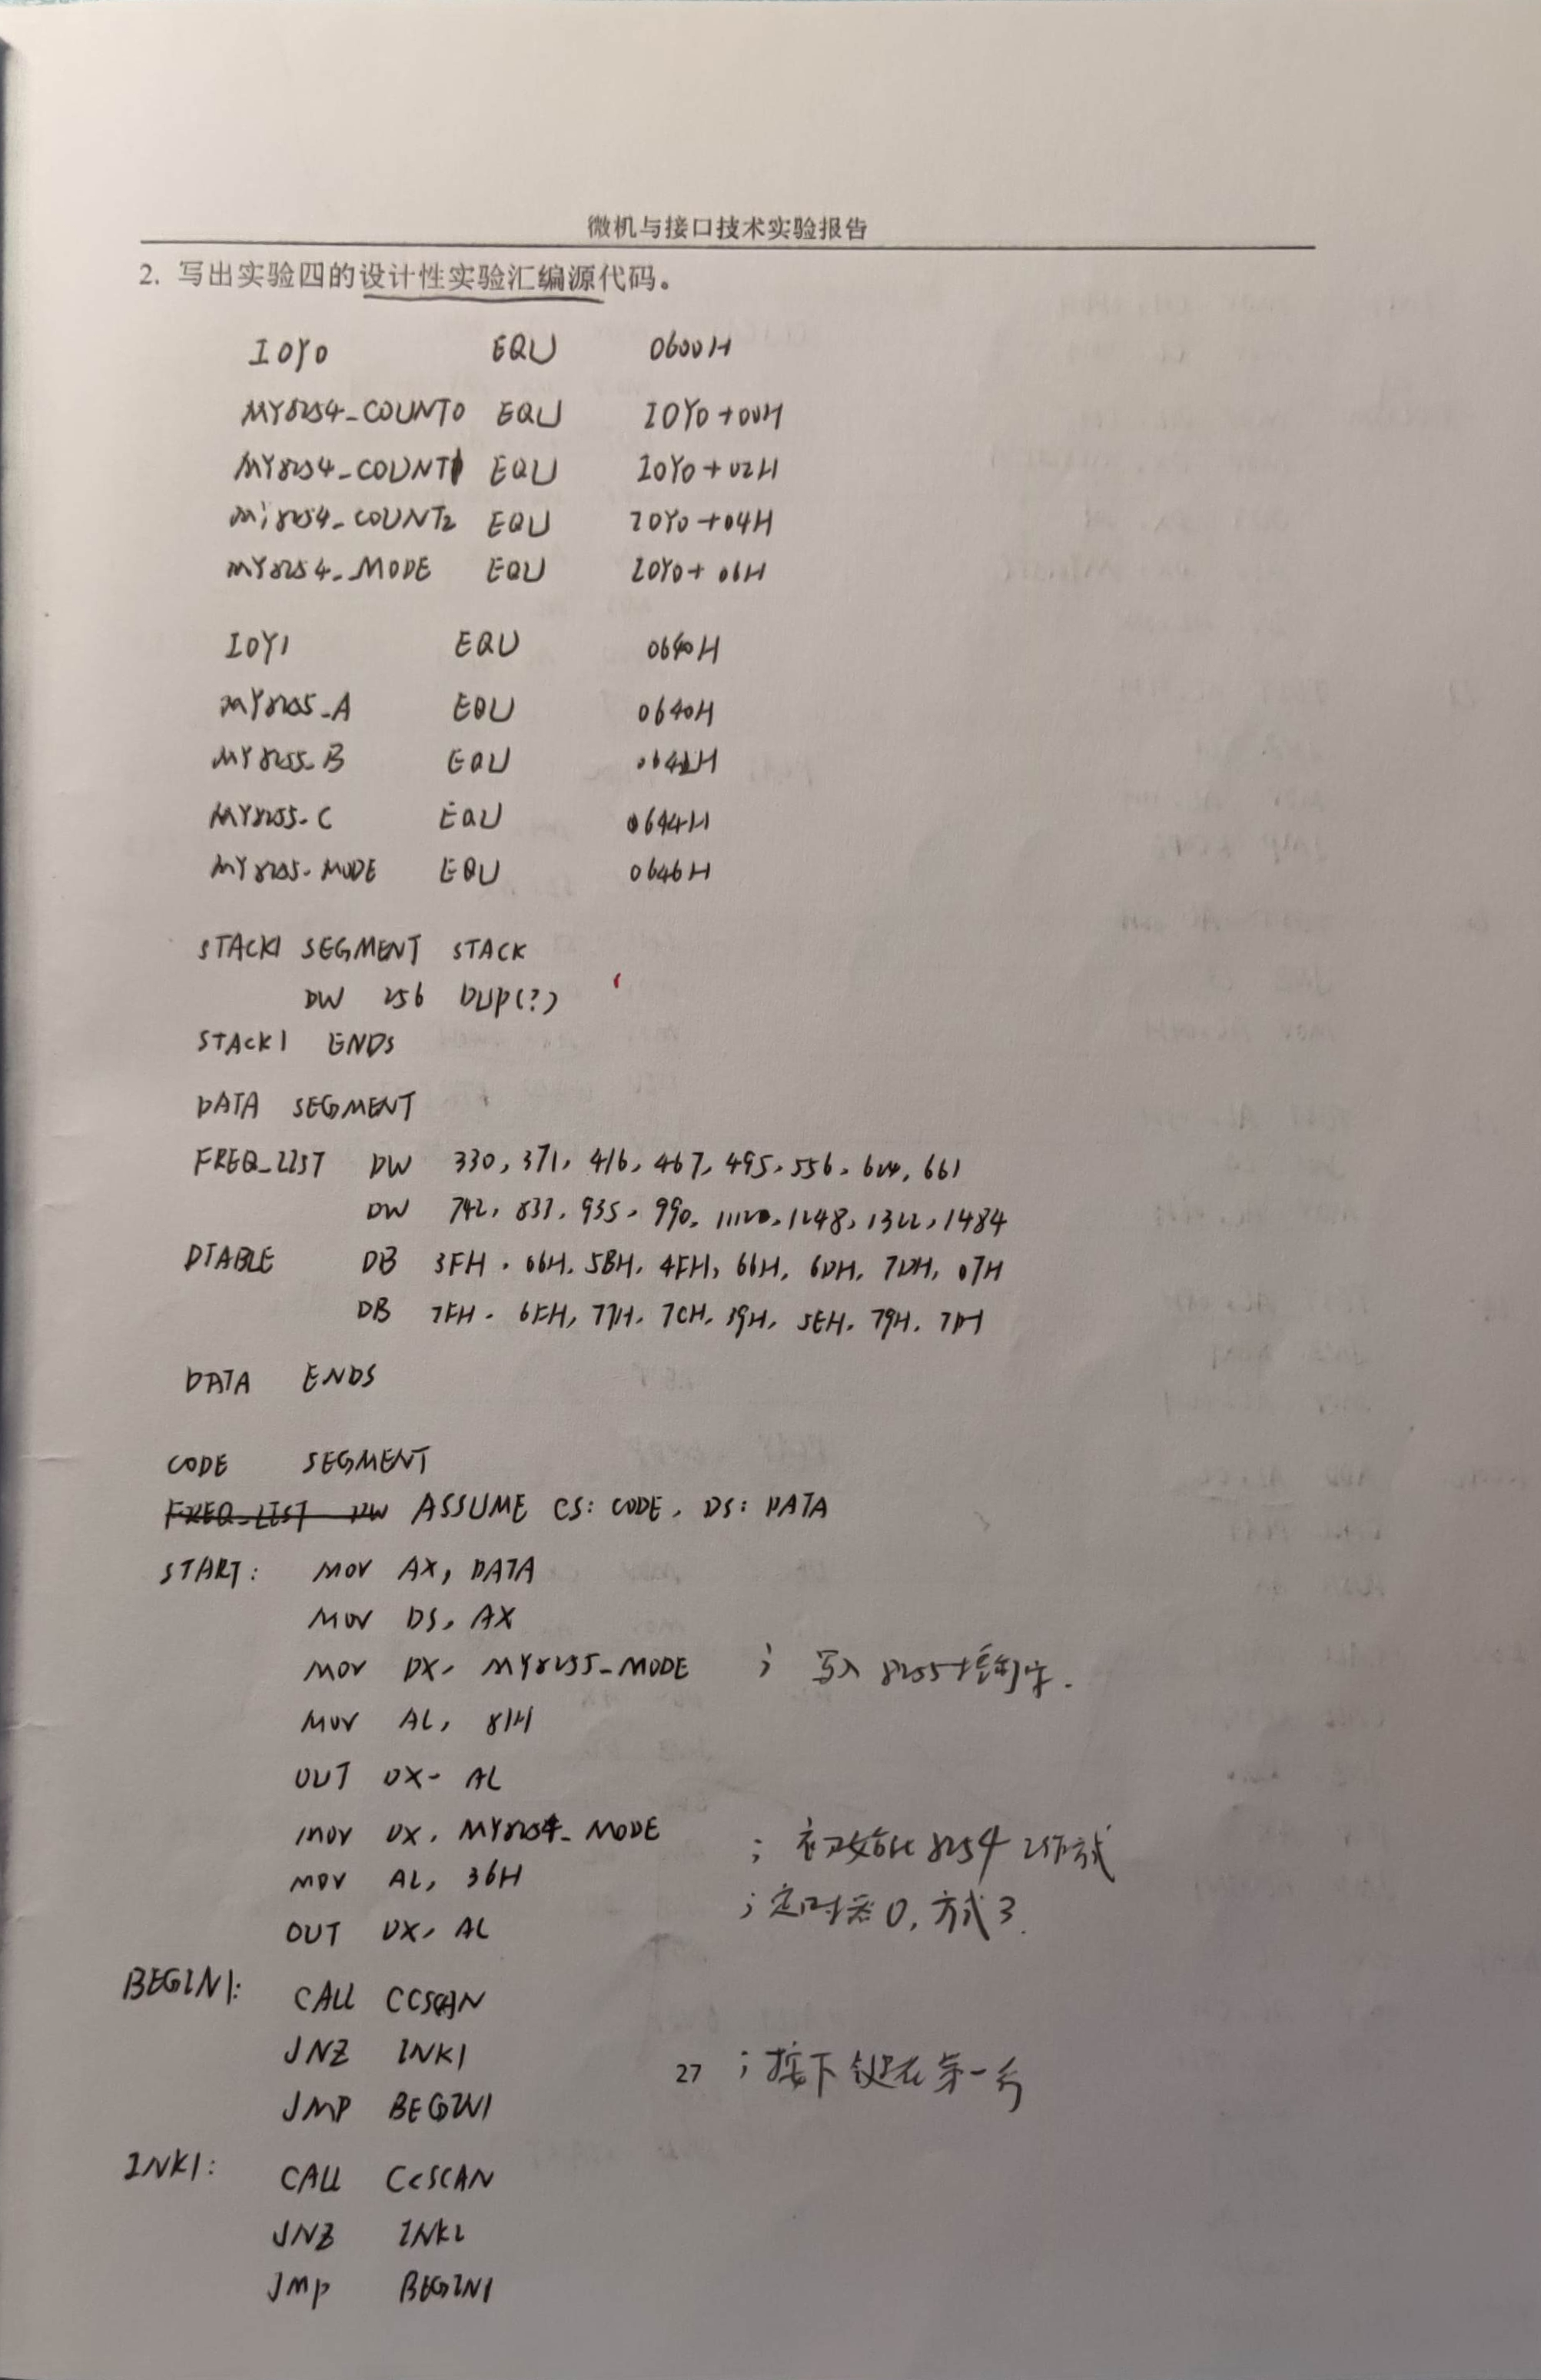 微机与接口技术实验报告
2. 写出实验四的设计性实验汇编源代码。
IOY0 EQU 0600H
MY8254_COUNT0 EQU IOY0+00H
MY8254_COUNT1 EQU IOY0+02H
MY8254_COUNT2 EQU IOY0+04H
MY8254_MODE EQU IOY0+06H
IOY1 EQU 0640H
MY8255_A EQU 0640H
MY8255_B EQU 0642H
MY8255_C EQU 0644H
MY8255_MODE EQU 0646H
STACK1 SEGMENT STACK
DW 256 DUP(?)
STACK1 ENDS
DATA SEGMENT
FREQ_LIST DW 330, 371, 416, 467, 495, 556, 624, 661
DW 742, 833, 935, 990, 1248, 1322, 1484
DTABLE DB 3FH, 06H, 5BH, 4FH, 66H, 6DH, 7DH, 07H
DB 7FH, 6FH, 77H, 7CH, 39H, 5EH, 79H, 71H
DATA ENDS
CODE SEGMENT
FREQ_LIST DW ASSUME CS: CODE, DS: DATA
START: MOV AX, DATA
MOV DS, AX
MOV DX, MY8255_MODE ; 写入8255控制字.
MOV AL, 81H
OUT DX, AL
MOV DX, MY8254_MODE ; 初始化8254工作方式
MOV AL, 36H ; 定时器0, 方式3.
OUT DX, AL
BEGIN1: CALL CCSCAN
JNZ INK1 27 ; 按下键在第一行
JMP BEGIN1
INK1: CALL CCSCAN
JNZ INK2
JMP BEGIN1